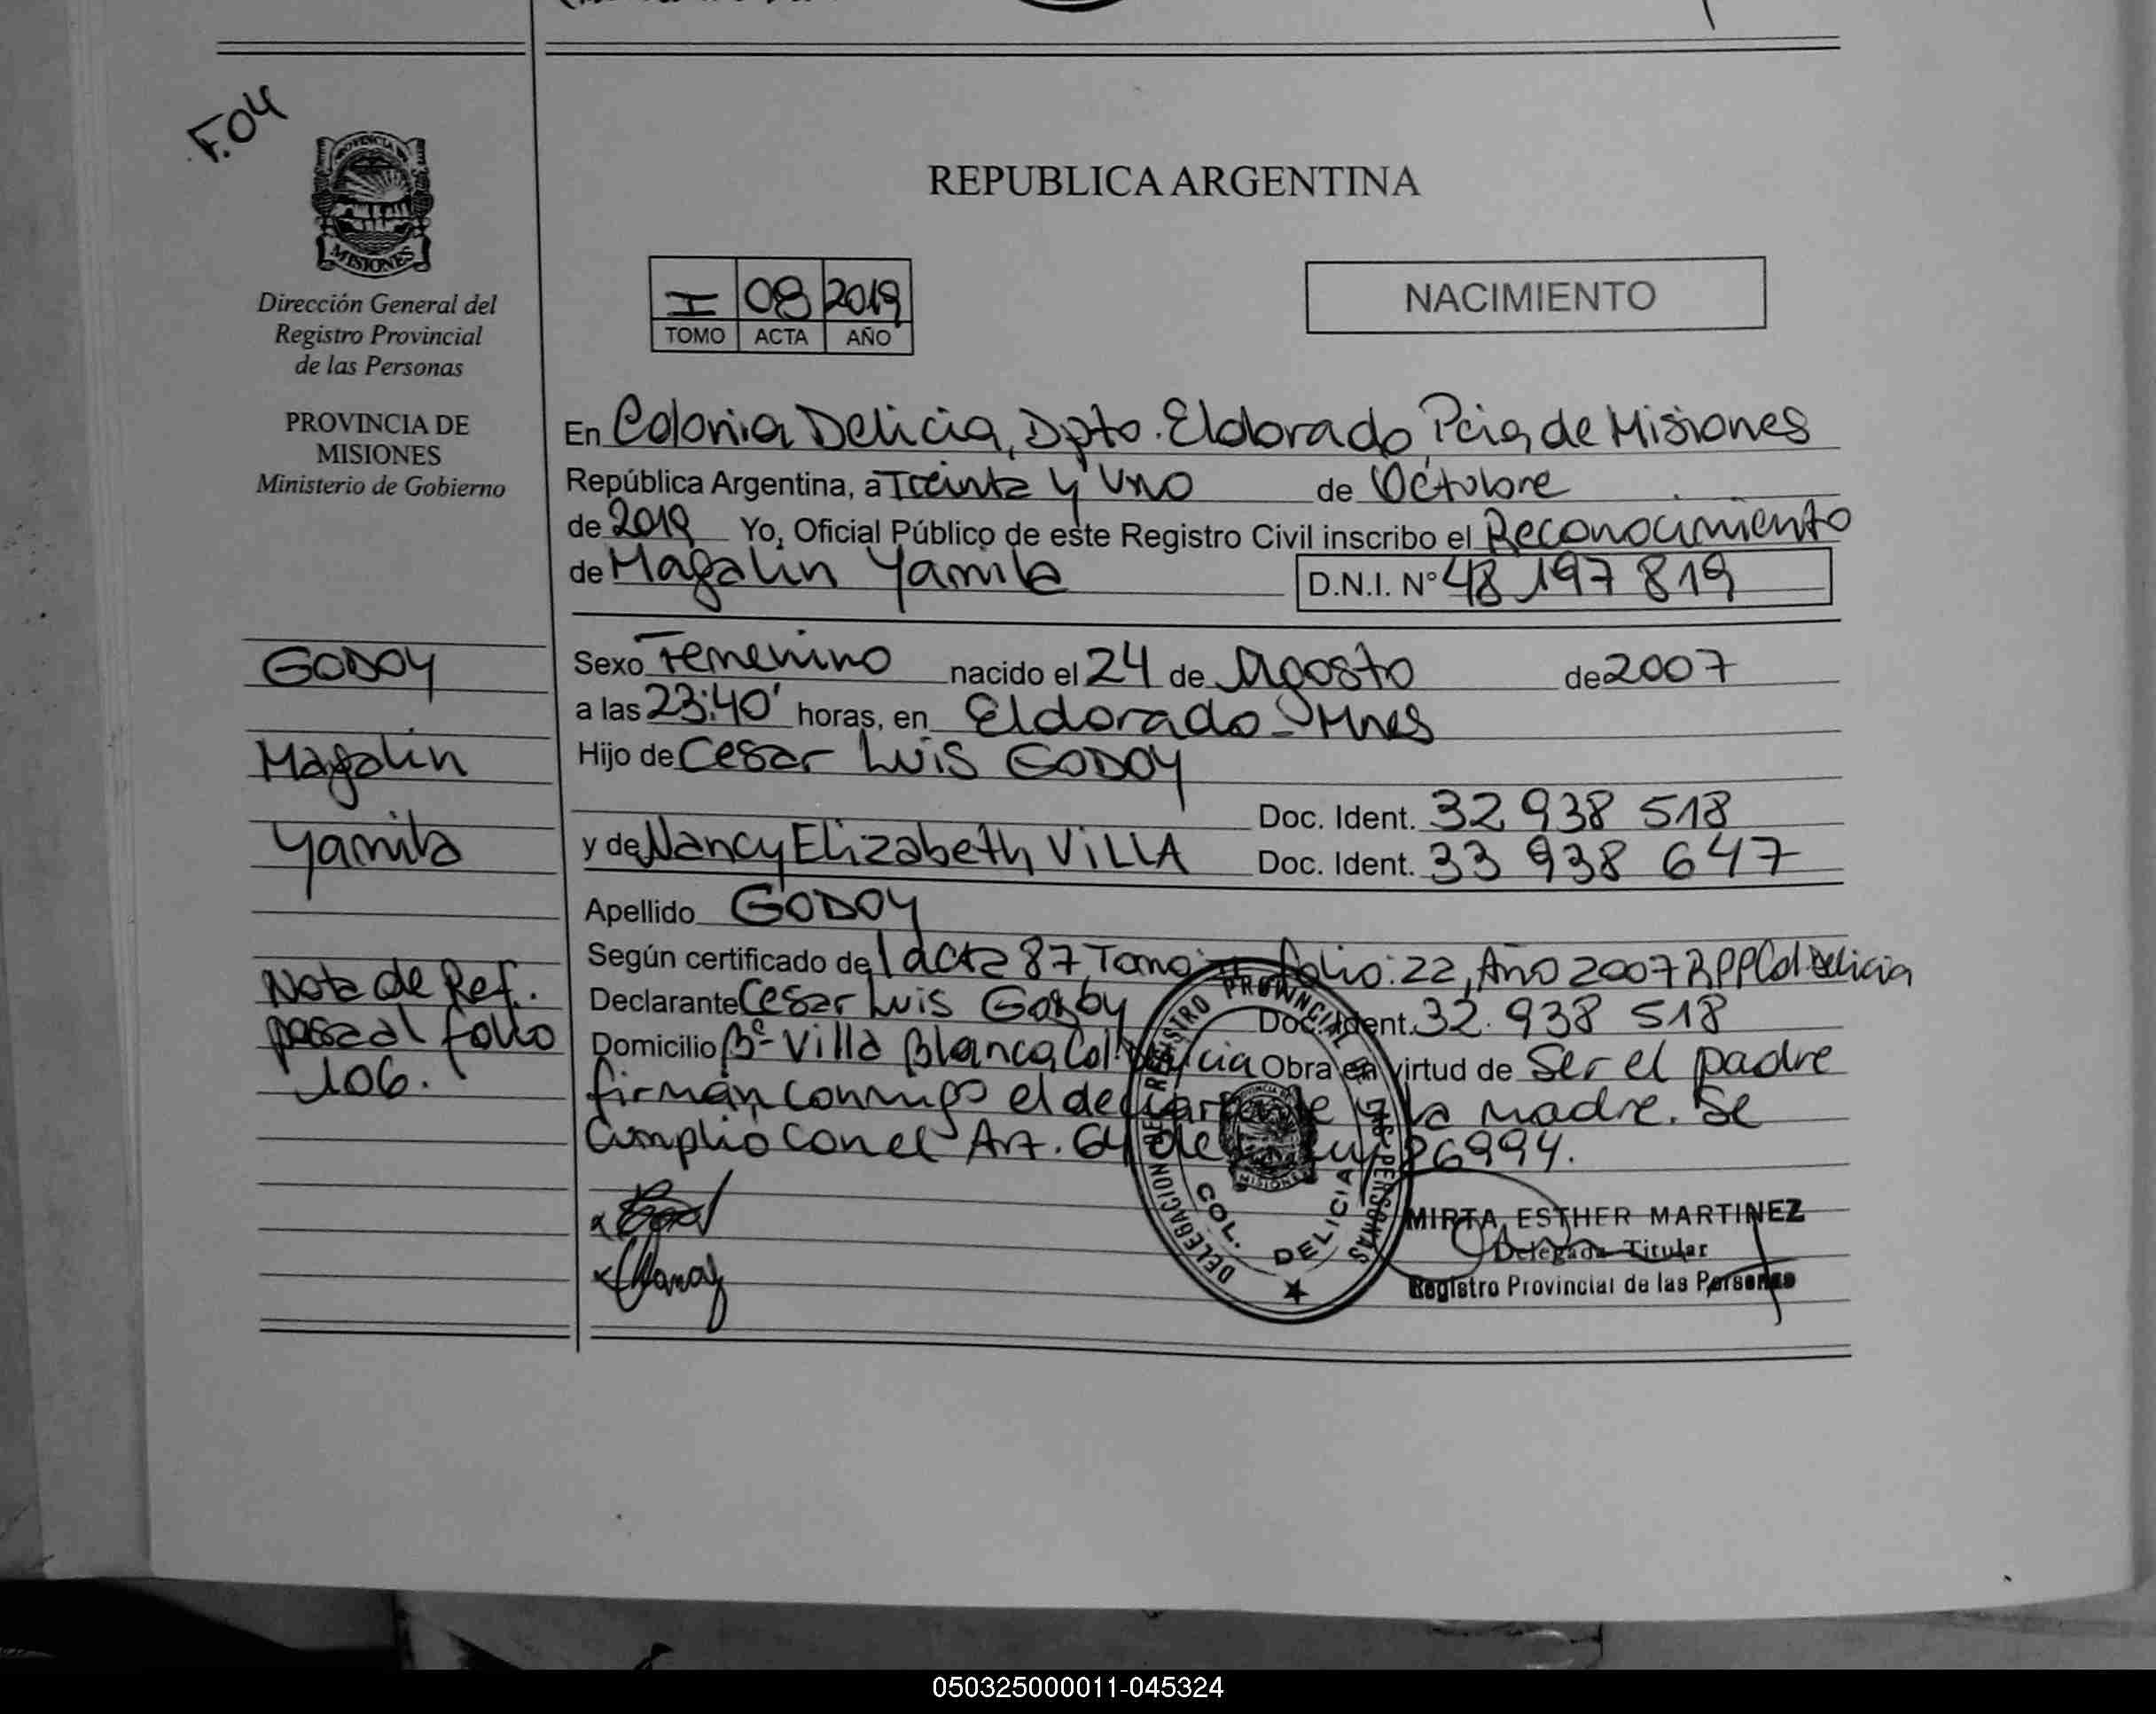 F.04
PROVINCIA DE
MISIONES
Dirección General del
Registro Provincial
de las Personas
PROVINCIA DE
MISIONES
Ministerio de Gobierno
REPUBLICA ARGENTINA
I 08 2019
TOMO ACTA AÑO
NACIMIENTO
En Colonia Delicia, Dpto. Eldorado, Pcia, de Misiones
República Argentina, a Treinta y Uno de Octubre
de 2019 Yo, Oficial Público de este Registro Civil inscribo el Reconocimiento
de Magalin Yamila D.N.I. Nº 48 197 819
Sexo Femenino nacido el 24 de Agosto de 2007
a las 23:40' horas, en Eldorado - Mnes
Hijo de Cesar Luis GODOY
Doc. Ident. 32 938 518
y de Nancy Elizabeth VILLA Doc. Ident. 33 938 647
Apellido GODOY
Según certificado de l acta 87, Tomo folio: 22, Año 2007 RPP Col Delicia
Declarante Cesar Luis Godoy Doc. Ident. 32. 938 518
Domicilio Bº Villa Blanca, Col Delicia Obra en virtud de Ser el padre
firman conmigo el declarante y la madre. Se
Cumplió con el Art. 64 de la Ley 26994.
GODOY
Magalin
Yamila
Nota de Ref.
pasa al folio
106.
DELEGACION DEL REGISTRO PROVINCIAL DE LAS PERSONAS
MISIONES
COL. DELICIA
MIRTA ESTHER MARTINEZ
Delegada Titular
Registro Provincial de las Personas
050325000011-045324